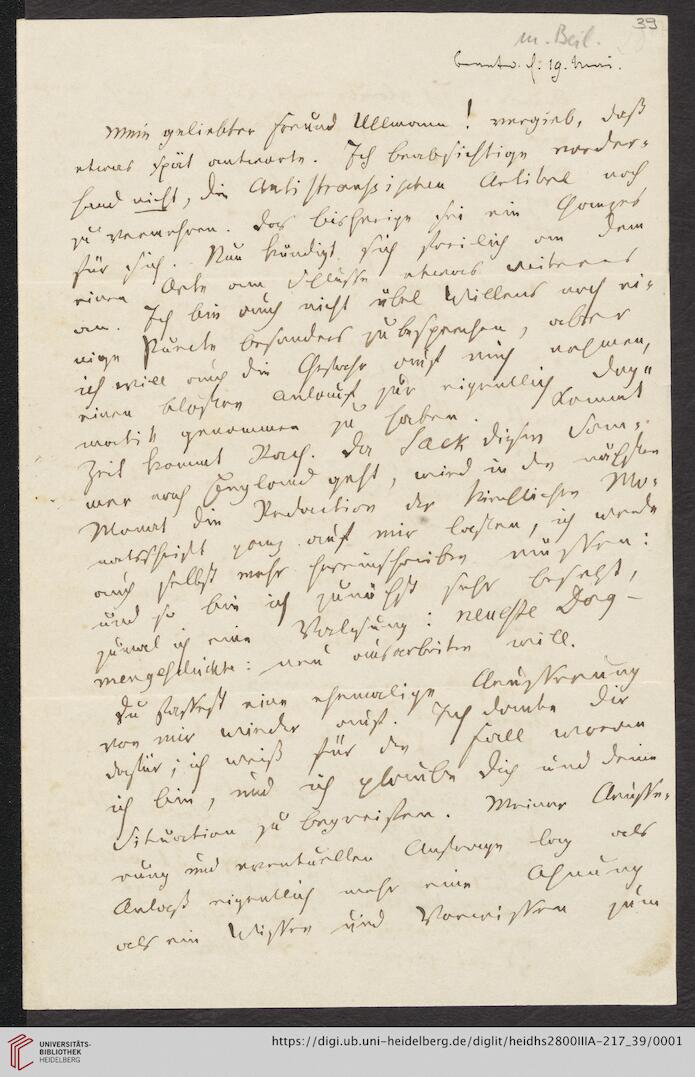 39
m. Beil.
beantw. d. 19. Mai.
Mein geliebter Freund Ullmann! vergieb, daß
etwas spät antworte. Ich beabsichtige vorder-
hand nicht, die Antistraußischen Artikel noch
zu vermehren. Das bisherige sei ein Ganzes
für sich. Nun kündigt sich freilich an dem
einen Orte am Schlusse etwas weiteres
an. Ich bin auch nicht übel Willens noch ei-
nige Puncte besonders zu besprechen, aber
ich will auch die Gefahr auf mich nehmen,
einen bloßen Anlauf zur eigentlich Dog-
matik genommen zu haben. Kommt
Zeit kommt Rath. Da Sack diesen Som-
mer nach England geht, wird in den nächsten
Monat die Redaction der kirchlichen Mo-
natsschrift ganz auf mir lasten, ich werde
auch selbst mehr hineinschreiben müssen:
und so bin ich zunächst sehr besetzt,
zumal ich eine Vorlesung: neueste Dog-
mengeschichte: neu ausarbeiten will.
Du fassest eine ehemalige Aeusserung
von mir wieder auf. Ich danke Dir
dafür; ich weiß für den Fall woran
ich bin, und ich glaube Dich und deine
Situation zu begreifen. Meiner Aeusse-
rung und eventuellen Anfrage lag als
Anlaß eigentlich mehr eine Ahnung
als ein Wissen und Vorwissen zum
UNIVERSITÄTS-
BIBLIOTHEK
HEIDELBERG
https://digi.ub.uni-heidelberg.de/diglit/heidhs2800IIIA-217_39/0001